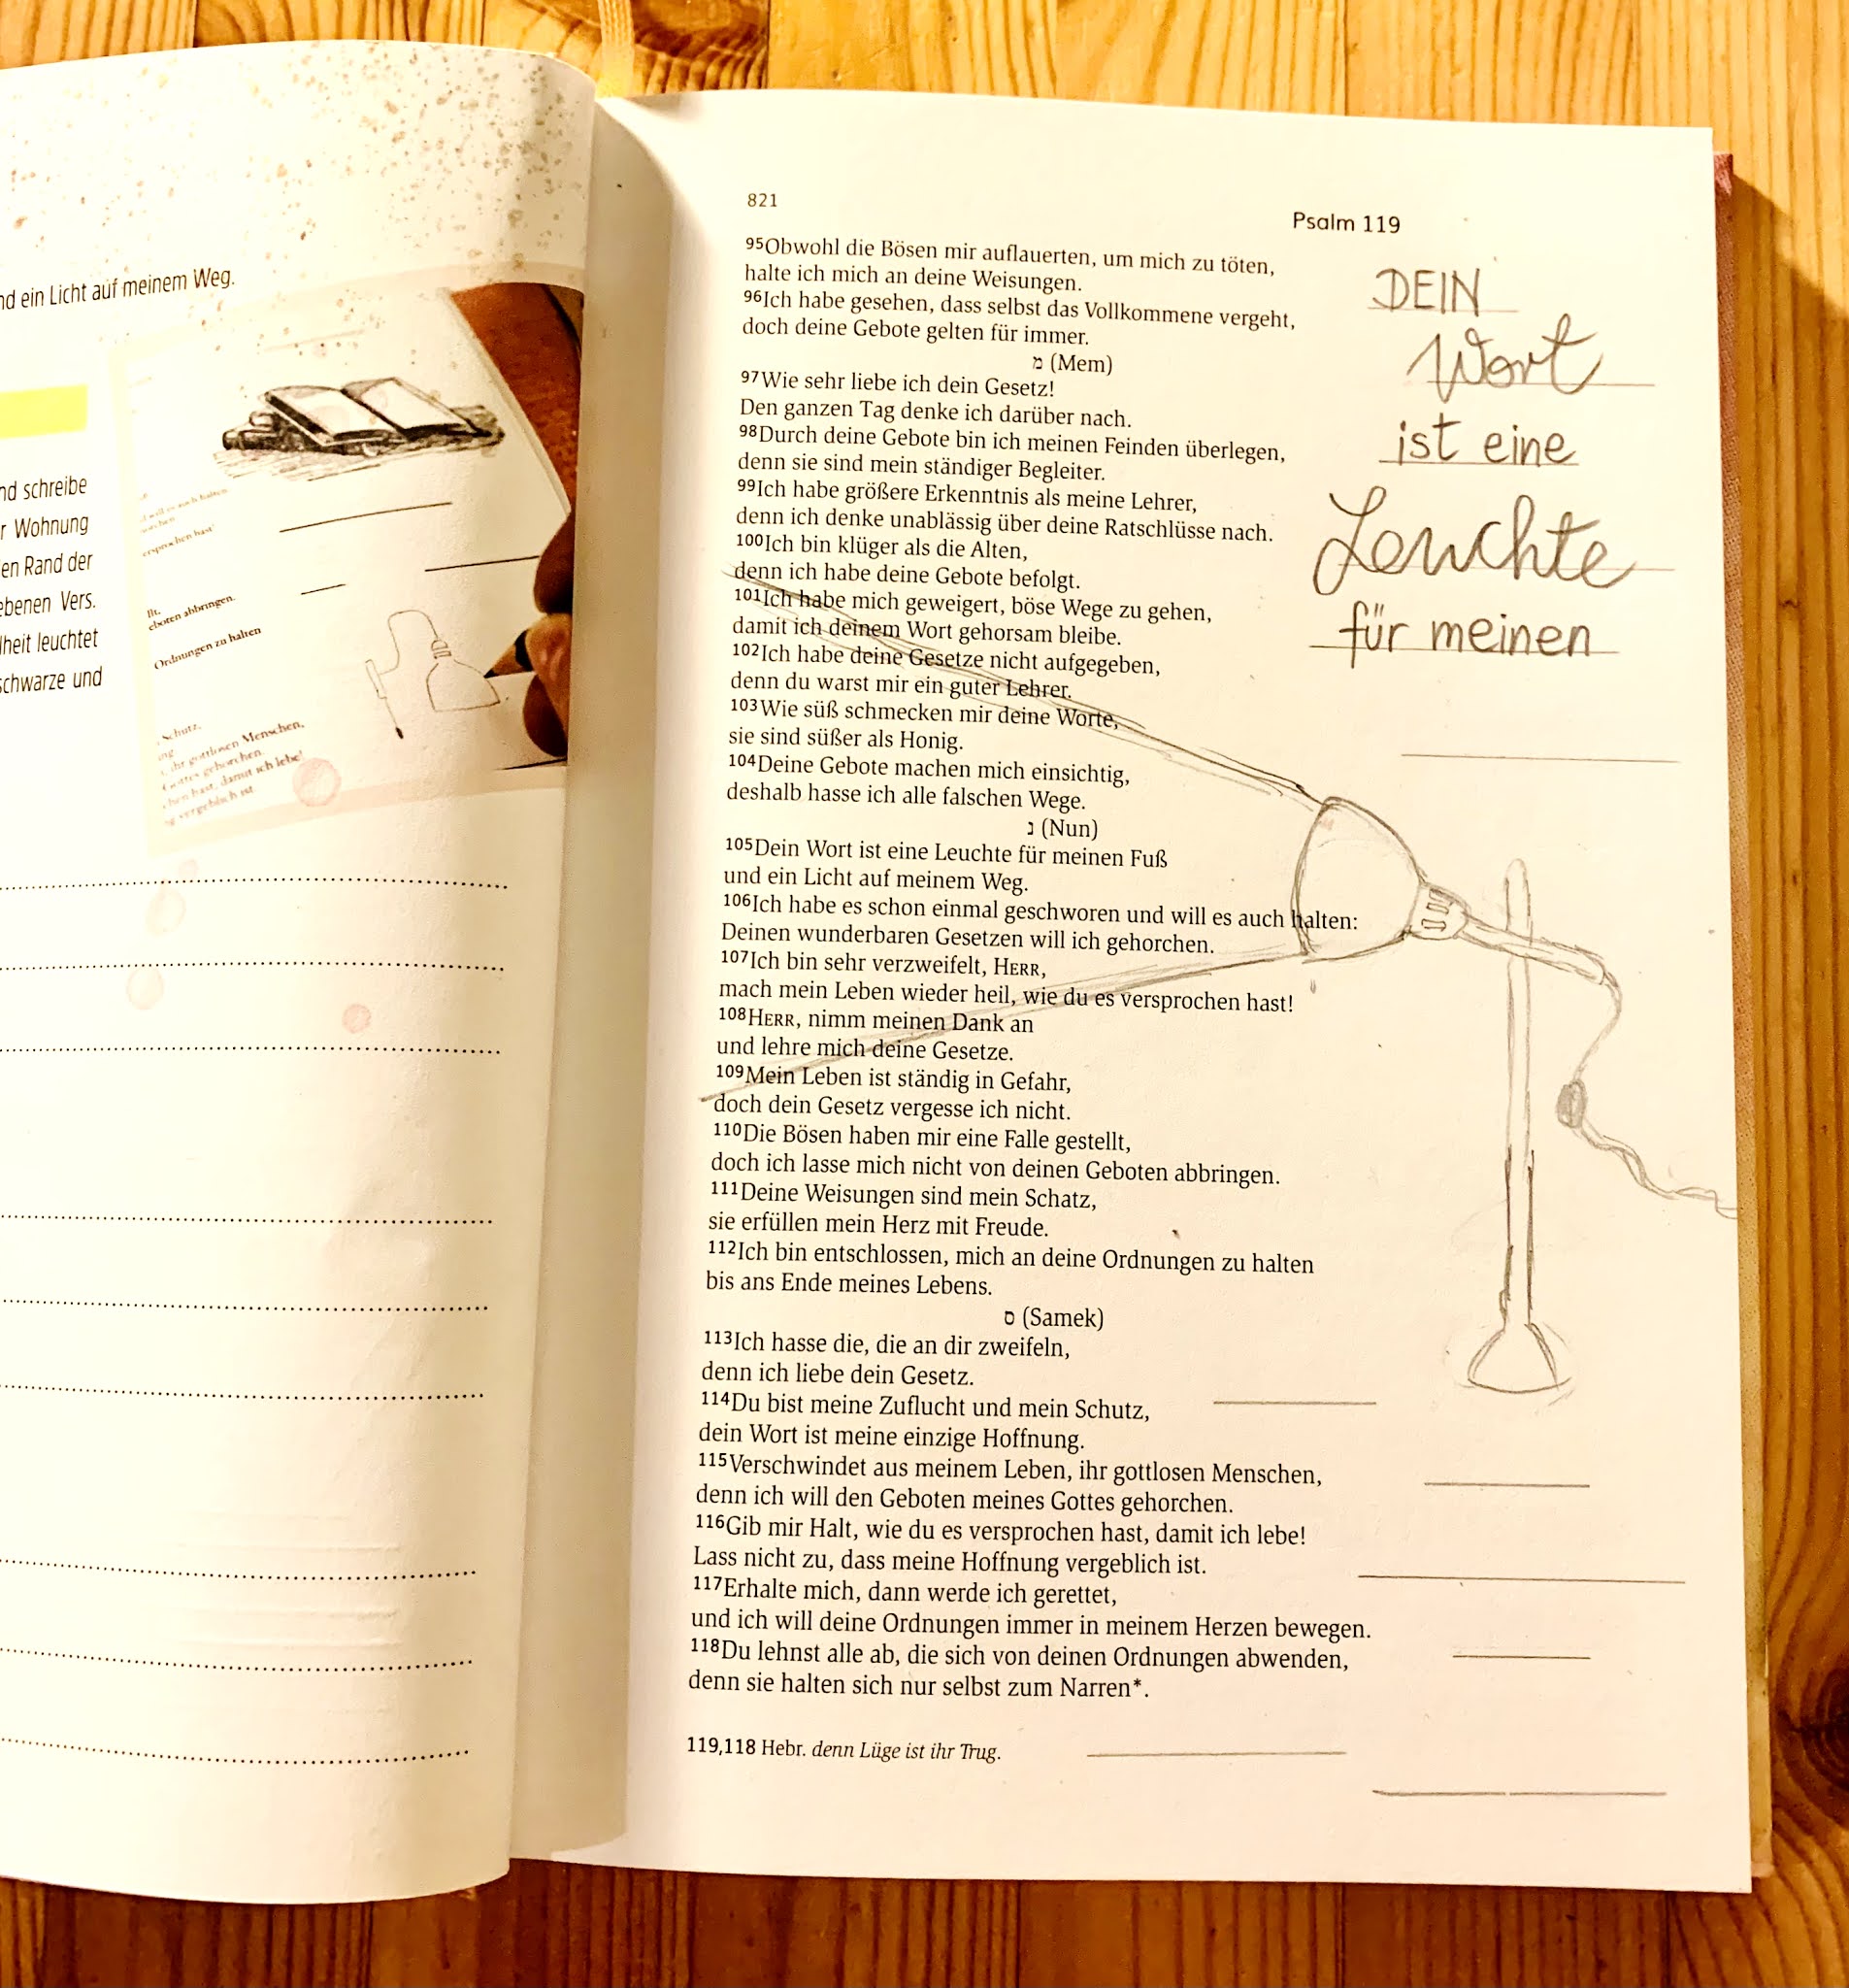 nd ein Licht auf meinem Weg.
nd schreibe
r Wohnung
en Rand der
ebenen Vers.
heit leuchtet
schwarze und
ersprochen hast!
eboten abbringen.
Ordnungen zu halten
Schutz,
ihr gottlosen Menschen,
Gottes gehorchen.
hen hast, damit ich lebe!
g vergeblich ist.
821
Psalm 119
95Obwohl die Bösen mir auflauerten, um mich zu töten,
halte ich mich an deine Weisungen.
96Ich habe gesehen, dass selbst das Vollkommene vergeht,
doch deine Gebote gelten für immer.
מ (Mem)
97Wie sehr liebe ich dein Gesetz!
Den ganzen Tag denke ich darüber nach.
98Durch deine Gebote bin ich meinen Feinden überlegen,
denn sie sind mein ständiger Begleiter.
99Ich habe größere Erkenntnis als meine Lehrer,
denn ich denke unablässig über deine Ratschlüsse nach.
100Ich bin klüger als die Alten,
denn ich habe deine Gebote befolgt.
101Ich habe mich geweigert, böse Wege zu gehen,
damit ich deinem Wort gehorsam bleibe.
102Ich habe deine Gesetze nicht aufgegeben,
denn du warst mir ein guter Lehrer.
103Wie süß schmecken mir deine Worte,
sie sind süßer als Honig.
104Deine Gebote machen mich einsichtig,
deshalb hasse ich alle falschen Wege.
נ (Nun)
105Dein Wort ist eine Leuchte für meinen Fuß
und ein Licht auf meinem Weg.
106Ich habe es schon einmal geschworen und will es auch halten:
Deinen wunderbaren Gesetzen will ich gehorchen.
107Ich bin sehr verzweifelt, HERR,
mach mein Leben wieder heil, wie du es versprochen hast!
108HERR, nimm meinen Dank an
und lehre mich deine Gesetze.
109Mein Leben ist ständig in Gefahr,
doch dein Gesetz vergesse ich nicht.
110Die Bösen haben mir eine Falle gestellt,
doch ich lasse mich nicht von deinen Geboten abbringen.
111Deine Weisungen sind mein Schatz,
sie erfüllen mein Herz mit Freude.
112Ich bin entschlossen, mich an deine Ordnungen zu halten
bis ans Ende meines Lebens.
ס (Samek)
113Ich hasse die, die an dir zweifeln,
denn ich liebe dein Gesetz.
114Du bist meine Zuflucht und mein Schutz,
dein Wort ist meine einzige Hoffnung.
115Verschwindet aus meinem Leben, ihr gottlosen Menschen,
denn ich will den Geboten meines Gottes gehorchen.
116Gib mir Halt, wie du es versprochen hast, damit ich lebe!
Lass nicht zu, dass meine Hoffnung vergeblich ist.
117Erhalte mich, dann werde ich gerettet,
und ich will deine Ordnungen immer in meinem Herzen bewegen.
118Du lehnst alle ab, die sich von deinen Ordnungen abwenden,
denn sie halten sich nur selbst zum Narren*.
119,118 Hebr. denn Lüge ist ihr Trug.
DEIN
Wort
ist eine
Leuchte
für meinen